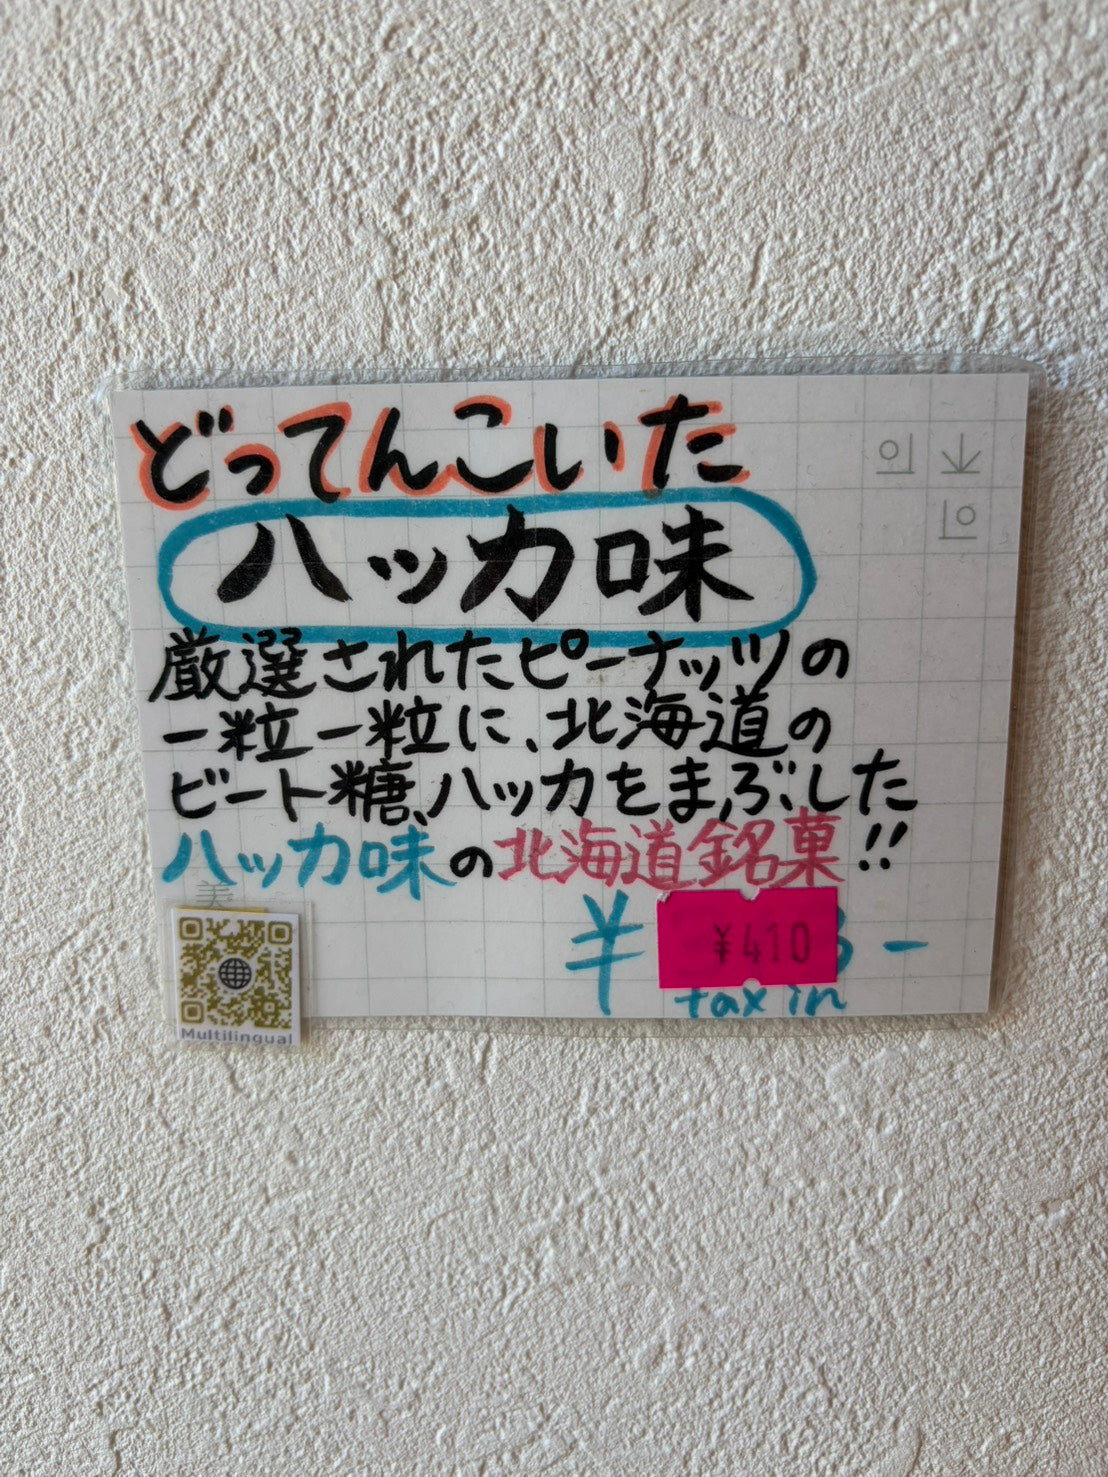 どってんこいた
ハッカ味
厳選されたピーナッツの
一粒一粒に、北海道の
ビート糖、ハッカをまぶした
ハッカ味の北海道銘菓!!
¥
¥410
-
tax in
Multilingual